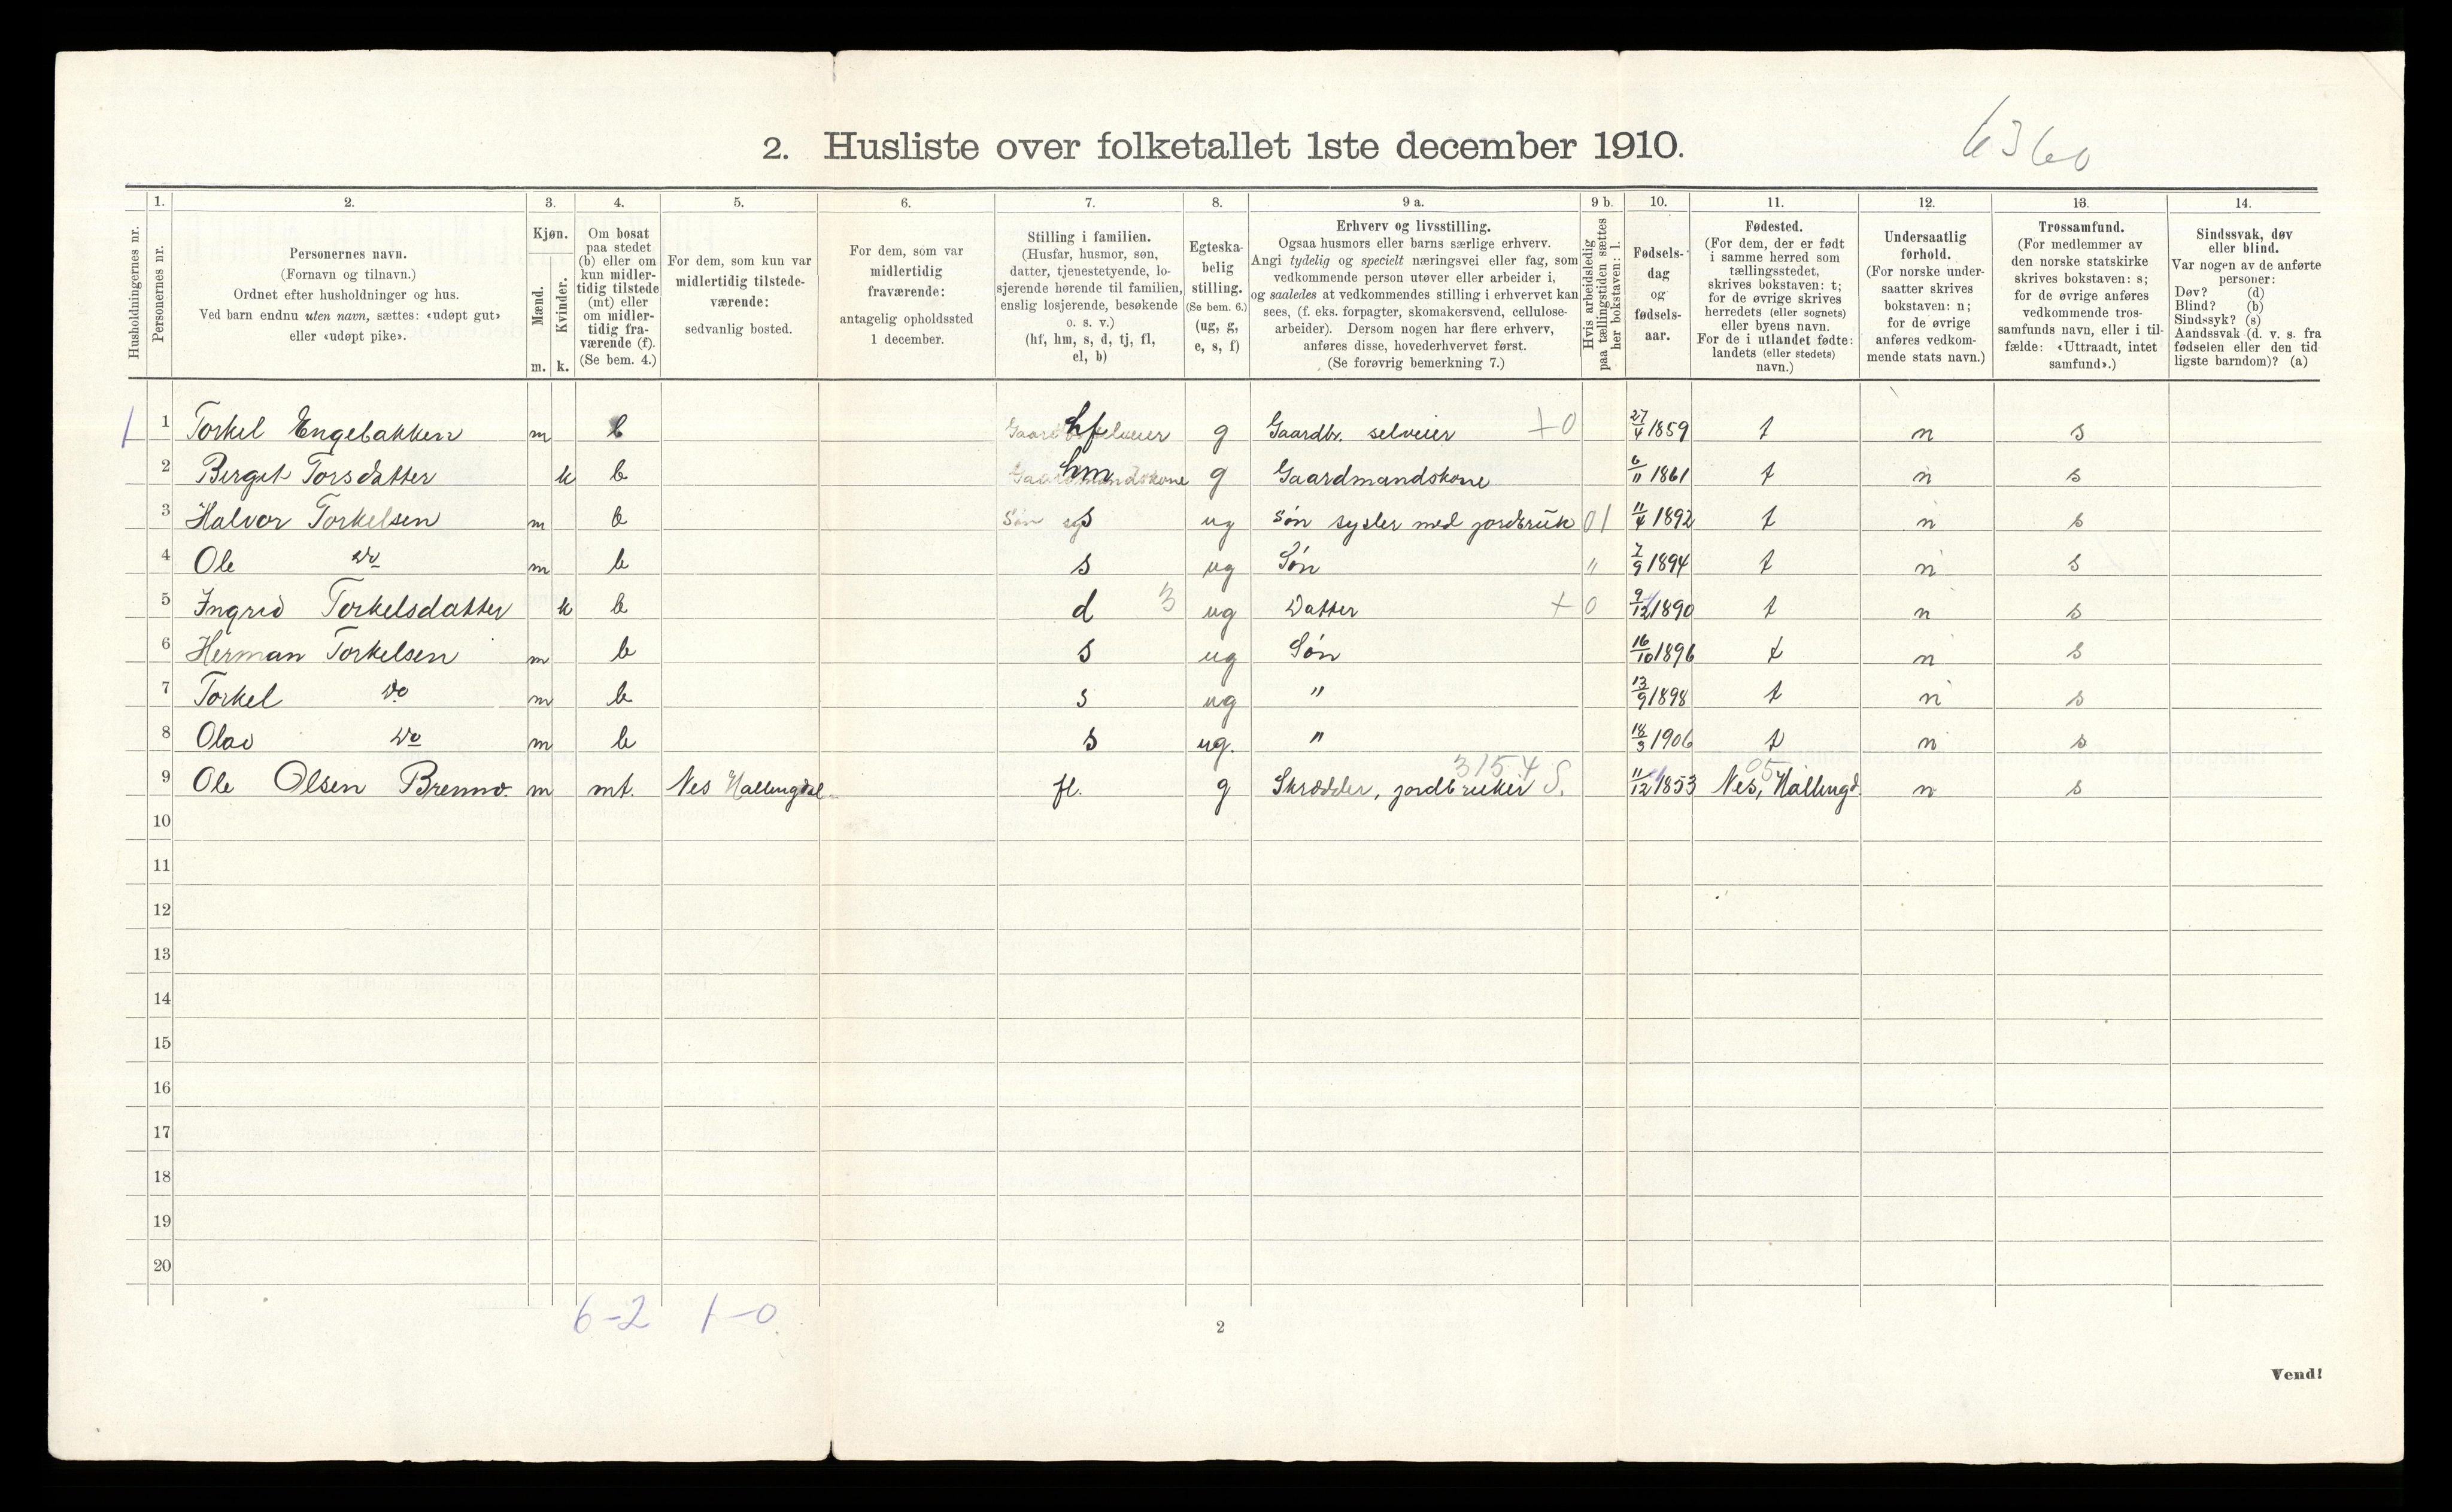 2. Husliste over folketallet 1ste december 1910.
6360
Husholdningernes nr.
1. Personernes nr.
2. Personernes navn.
(Fornavn og tilnavn.)
Ordnet efter husholdninger og hus.
Ved barn endnu uten navn, sættes: «udøpt gut»
eller «udøpt pike».
3. Kjøn.
Mænd. m.
Kvinder. k.
4. Om bosat
paa stedet
(b) eller om
kun midler-
tidig tilstede
(mt) eller
om midler-
tidig fra-
værende (f).
(Se bem. 4.)
5. For dem, som kun var
midlertidig tilstede-
værende:
sedvanlig bosted.
6. For dem, som var
midlertidig
fraværende:
antagelig opholdssted
1 december.
7. Stilling i familien.
(Husfar, husmor, søn,
datter, tjenestetyende, lo-
sjerende hørende til familien,
enslig losjerende, besøkende
o. s. v.)
(hf, hm, s, d, tj, fl,
el, b)
8. Egteska-
belig
stilling.
(Se bem. 6.)
(ug, g,
e, s, f)
9 a. Erhverv og livsstilling.
Ogsaa husmors eller barns særlige erhverv.
Angi tydelig og specielt næringsvei eller fag, som
vedkommende person utøver eller arbeider i,
og saaledes at vedkommendes stilling i erhvervet kan
sees, (f. eks. forpagter, skomakersvend, cellulose-
arbeider). Dersom nogen har flere erhverv,
anføres disse, hovederhvervet først.
(Se forøvrig bemerkning 7.)
9 b. Hvis arbeidsledig
paa tællingstiden sættes
her bokstaven: l.
10. Fødsels-
dag
og
fødsels-
aar.
11. Fødested.
(For dem, der er født
i samme herred som
tællingsstedet,
skrives bokstaven: t;
for de øvrige skrives
herredets (eller sognets)
eller byens navn.
For de i utlandet fødte:
landets (eller stedets)
navn.)
12. Undersaatlig
forhold.
(For norske under-
saatter skrives
bokstaven: n;
for de øvrige
anføres vedkom-
mende stats navn.)
13. Trossamfund.
(For medlemmer av
den norske statskirke
skrives bokstaven: s;
for de øvrige anføres
vedkommende tros-
samfunds navn, eller i til-
fælde: «Uttraadt, intet
samfund».)
14. Sindssvak, døv
eller blind.
Var nogen av de anførte
personer:
Døv? (d)
Blind? (b)
Sindssyk? (s)
Aandssvak (d. v. s. fra
fødselen eller den tid-
ligste barndom)? (a)
1 1 Torkel Engebakken m b hf g Gaardbr. selveier +0 27/4 1859 t n s
2 Birgit Torsdatter k b Gaardmandskone hm g Gaardmandskone 6/11 1861 t n s
3 Halvor Torkelsen m b Søn s ug Søn sysler med jordbruk 01 11/4 1892 t n s
4 Ole do m b s ug Søn " 7/9 1894 t n s
5 Ingrid Torkelsdatter k b d 3 ug Datter +0 9/12 1890 t n s
6 Herman Torkelsen m b s ug Søn 16/10 1896 t n s
7 Torkel do m b s ug " 13/9 1898 t n s
8 Olav do m b s ug. " 18/3 1906 t n s
9 Ole Olsen Brenno. m mt. Nes Hallingdal fl. g Skrædder, jordbruker S. 3154 11/12 1853 Nes, Hallingd. 05 n s
10
11
12
13
14
15
16
17
18
19
20
6-2 1-0
2
Vend!